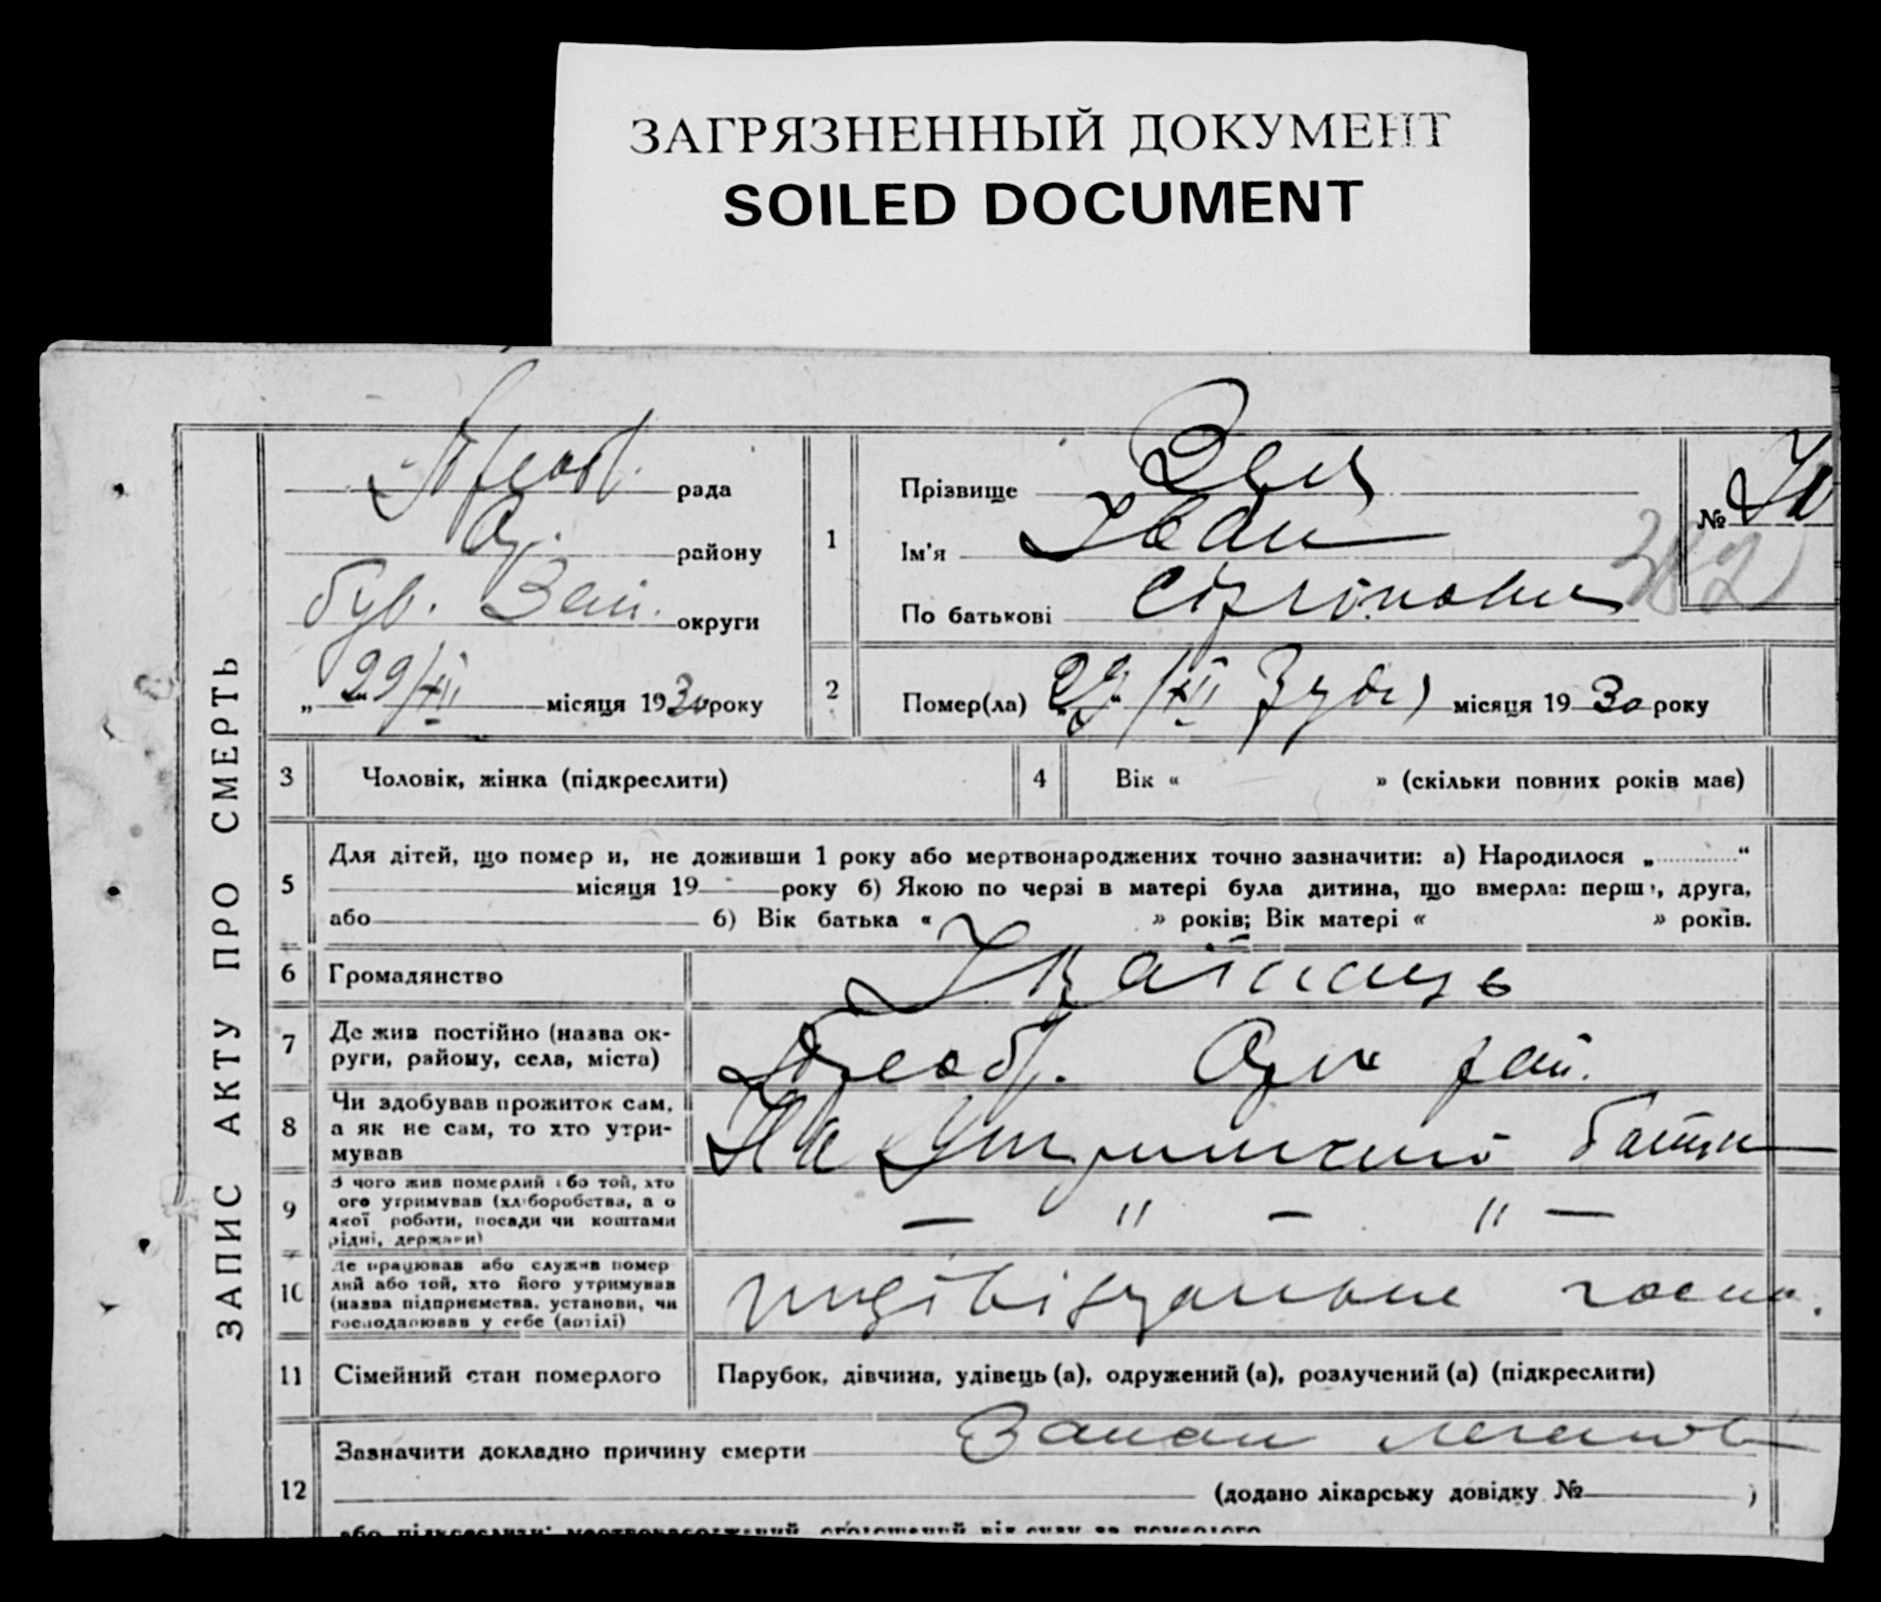 ЗАГРЯЗНЕННЫЙ ДОКУМЕНТ
SOILED DOCUMENT
ЗАПИС АКТУ ПРО СМЕРТЬ
рада
району
був. Зап. округи
„ 29/XII місяця 1930 року
1
Прізвище
Ім'я Іван
По батькові
№
382
2
Помер(ла) 29/XII місяця 1930 року
3 Чоловік, жінка (підкреслити)
4 Вік « » (скільки повних років має)
5
Для дітей, що помер и, не доживши 1 року або мертвонароджених точно зазначити: а) Народилося „ “
місяця 19 року б) Якою по черзі в матері була дитина, що вмерла: перш , друга,
або б) Вік батька « » років; Вік матері « » років.
6 Громадянство Українець
7
Де жив постійно (назва ок-
руги, району, села, міста)
Преоб. Оріх рай.
8
Чи здобував прожиток сам,
а як не сам, то хто утри-
мував
На утриманні батьки
9
З чого жив померлий або той, хто
ого утримував (хліборобства, а о
якої роботи, посади чи коштами
рідні, держави)
— " — " —
10
Де працював або служив помер
лий або той, хто його утримував
(назва підприємства, установи, чи
господарював у себе (артілі)
індівідуальне госп.
11 Сімейний стан померлого Парубок, дівчина, удівець (а), одружений (а), розлучений (а) (підкреслити)
12
Зазначити докладно причину смерти Запал легенів
(додано лікарську довідку № )